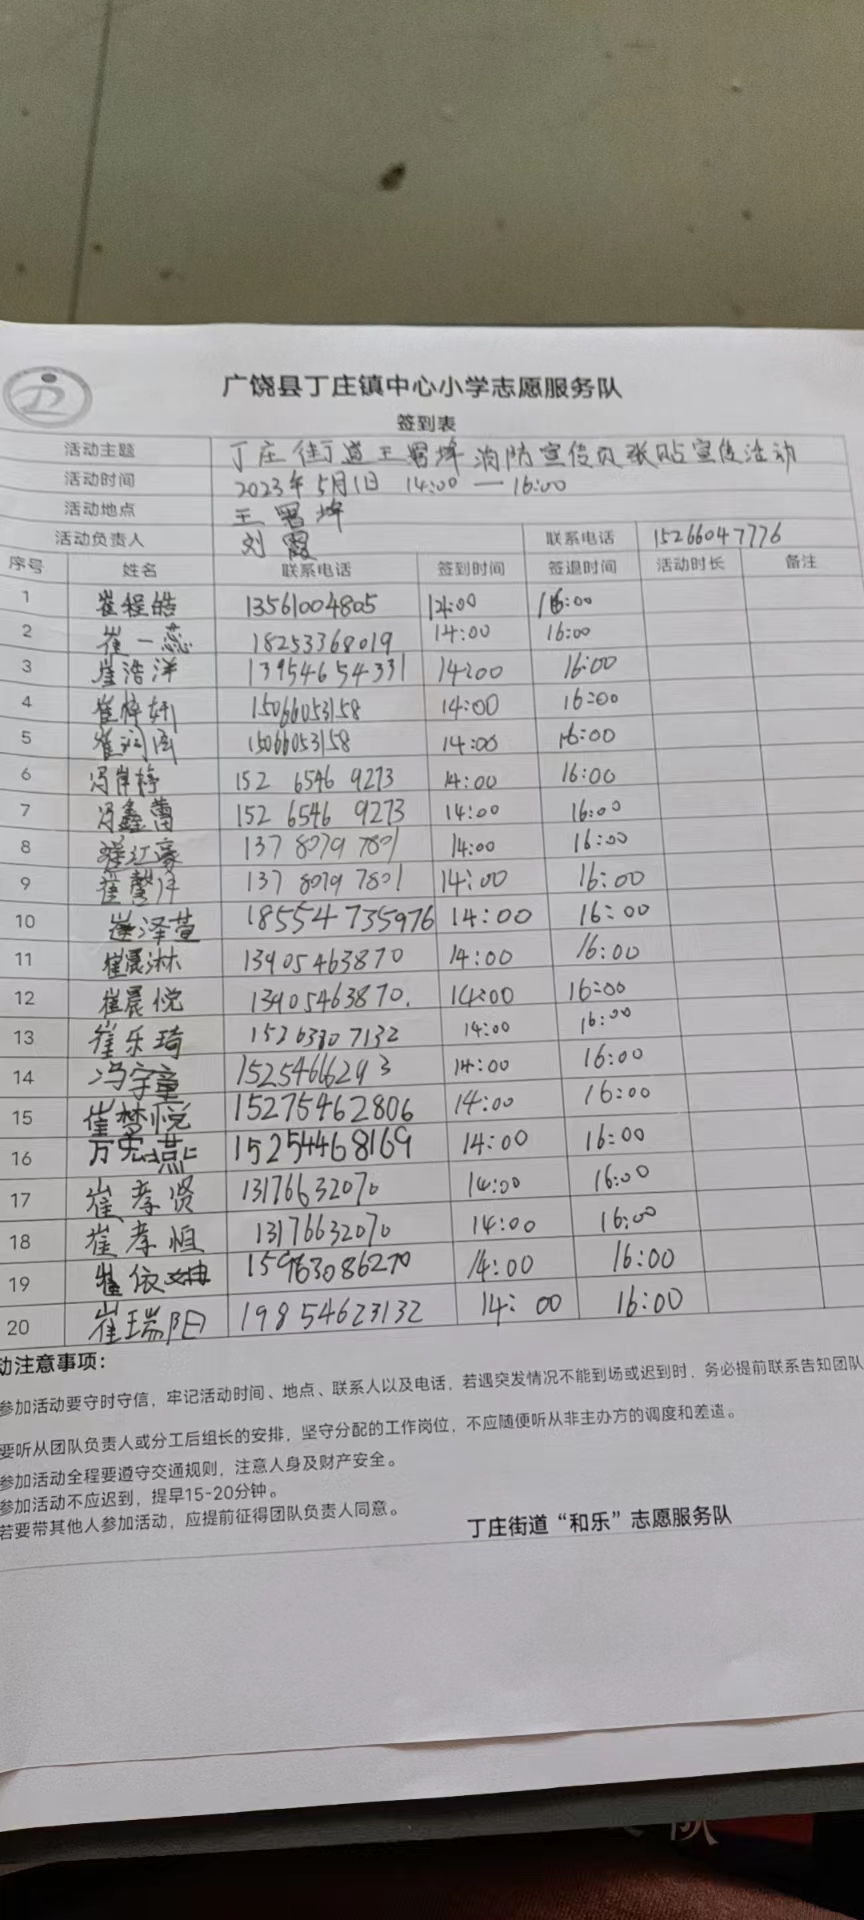 广饶县丁庄镇中心小学志愿服务队
签到表
活动主题 丁庄街道王署埠消防宣传页张贴宣传活动
活动时间 2023年5月1日 14:00—16:00
活动地点 王署埠
活动负责人 刘霞 联系电话 15266047776
序号 姓名 联系电话 签到时间 签退时间 活动时长 备注
1 崔程皓 13561004805 14:00 16:00
2 崔一蕊 18253368019 14:00 16:00
3 崔浩洋 13954654331 14:00 16:00
4 崔梓轩 15066053158 14:00 16:00
5 崔润 15066053158 14:00 16:00
6 冯 152 6546 9273 14:00 16:00
7 冯鑫蕾 152 6546 9273 14:00 16:00
8 江豪 137 8079 7801 14:00 16:00
9 崔馨 137 8079 7801 14:00 16:00
10 崔泽萱 18554735976 14:00 16:00
11 崔晨淋 13905463870 14:00 16:00
12 崔晨悦 13905463870. 14:00 16:00
13 崔乐琦 14:00 16:00
14 冯宇童 15254666293 14:00 16:00
15 崔梦悦 15275462806 14:00 16:00
16 万宏燕 15254468169 14:00 16:00
17 崔孝贤 13176632070 14:00 16:00
18 崔孝恒 13176632070 14:00 16:00
19 崔依 15963086270 14:00 16:00
20 崔瑞阳 19854623132 14:00 16:00
动注意事项：
参加活动要守时守信，牢记活动时间、地点、联系人以及电话，若遇突发情况不能到场或迟到时，务必提前联系告知团队
要听从团队负责人或分工后组长的安排，坚守分配的工作岗位，不应随便听从非主办方的调度和差遣。
参加活动全程要遵守交通规则，注意人身及财产安全。
参加活动不应迟到，提早15-20分钟。
若要带其他人参加活动，应提前征得团队负责人同意。
丁庄街道“和乐”志愿服务队
队